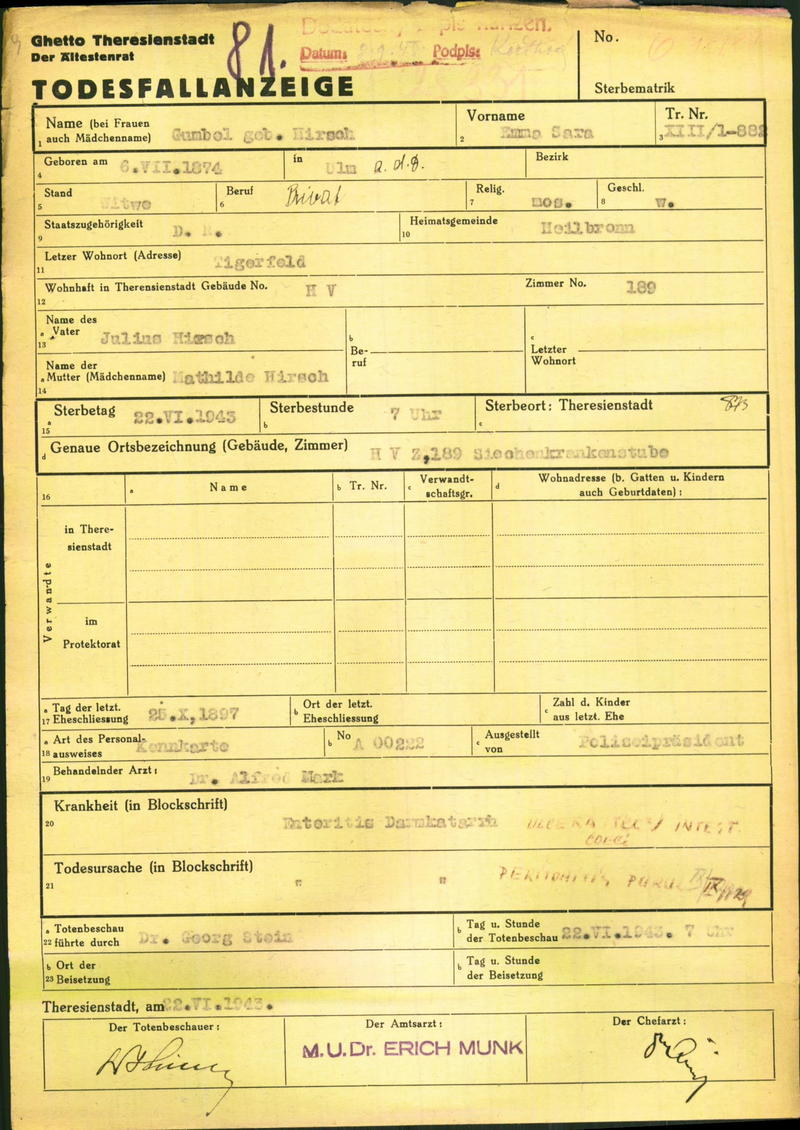 Ghetto Theresienstadt
Der Ältestenrat
TODESFALLANZEIGE
81.
Datum: Podpis:
No.
Sterbematrik
Name (bei Frauen
1 auch Mädchenname) Gumbel geb. Hirsch
Vorname
2 Emma Sara
Tr. Nr.
3 XIII/1-882
Geboren am 6.VII.1874
4
in Ulm a.d.D.
Bezirk
Stand Witwe
5
Beruf Privat
6
Relig. mos.
7
Geschl. w.
8
Staatszugehörigkeit D. R.
9
Heimatsgemeinde Heilbronn
10
Letzer Wohnort (Adresse) Tigerfeld
11
Wohnhaft in Therensienstadt Gebäude No. H V
12
Zimmer No. 189
Name des
a Vater Julius Hirsch
13
b
Be-
ruf
c
Letzter
Wohnort
Name der
a Mutter (Mädchenname) Mathilde Hirsch
14
Sterbetag 22.VI.1943
a
15
Sterbestunde 7 Uhr
b
Sterbeort: Theresienstadt
c
873
d Genaue Ortsbezeichnung (Gebäude, Zimmer) H V Z,189 Siechenkrankenstube
16
a Name
b Tr. Nr.
c Verwandt-
schaftsgr.
d Wohnadresse (b. Gatten u. Kindern
auch Geburtdaten):
Verwandte
in There-
sienstadt
im
Protektorat
a Tag der letzt.
17 Eheschliessung 25.X,1897
b Ort der letzt.
Eheschliessung
c Zahl d. Kinder
aus letzt. Ehe
a Art des Personal-
18 ausweises Kennkarte
b No A 00222
c Ausgestellt
von Polizeipräsident
19 Behandelnder Arzt: Dr. Alfred Mark
Krankheit (in Blockschrift)
20
Enteritis Darmkatarrh
INTEST.
Todesursache (in Blockschrift)
21
" "
a Totenbeschau
22 führte durch Dr. Georg Stein
b Tag u. Stunde
der Totenbeschau 22.VI.1943. 7 Uhr
b Ort der
23 Beisetzung
b Tag u. Stunde
der Beisetzung
Theresienstadt, am 22.VI.1943.
Der Totenbeschauer:
Der Amtsarzt:
M.U.Dr. ERICH MUNK
Der Chefarzt: